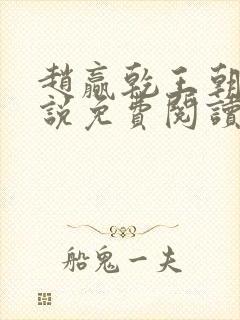 趙贏乾王朝
說免費閱讀
船鬼一夫